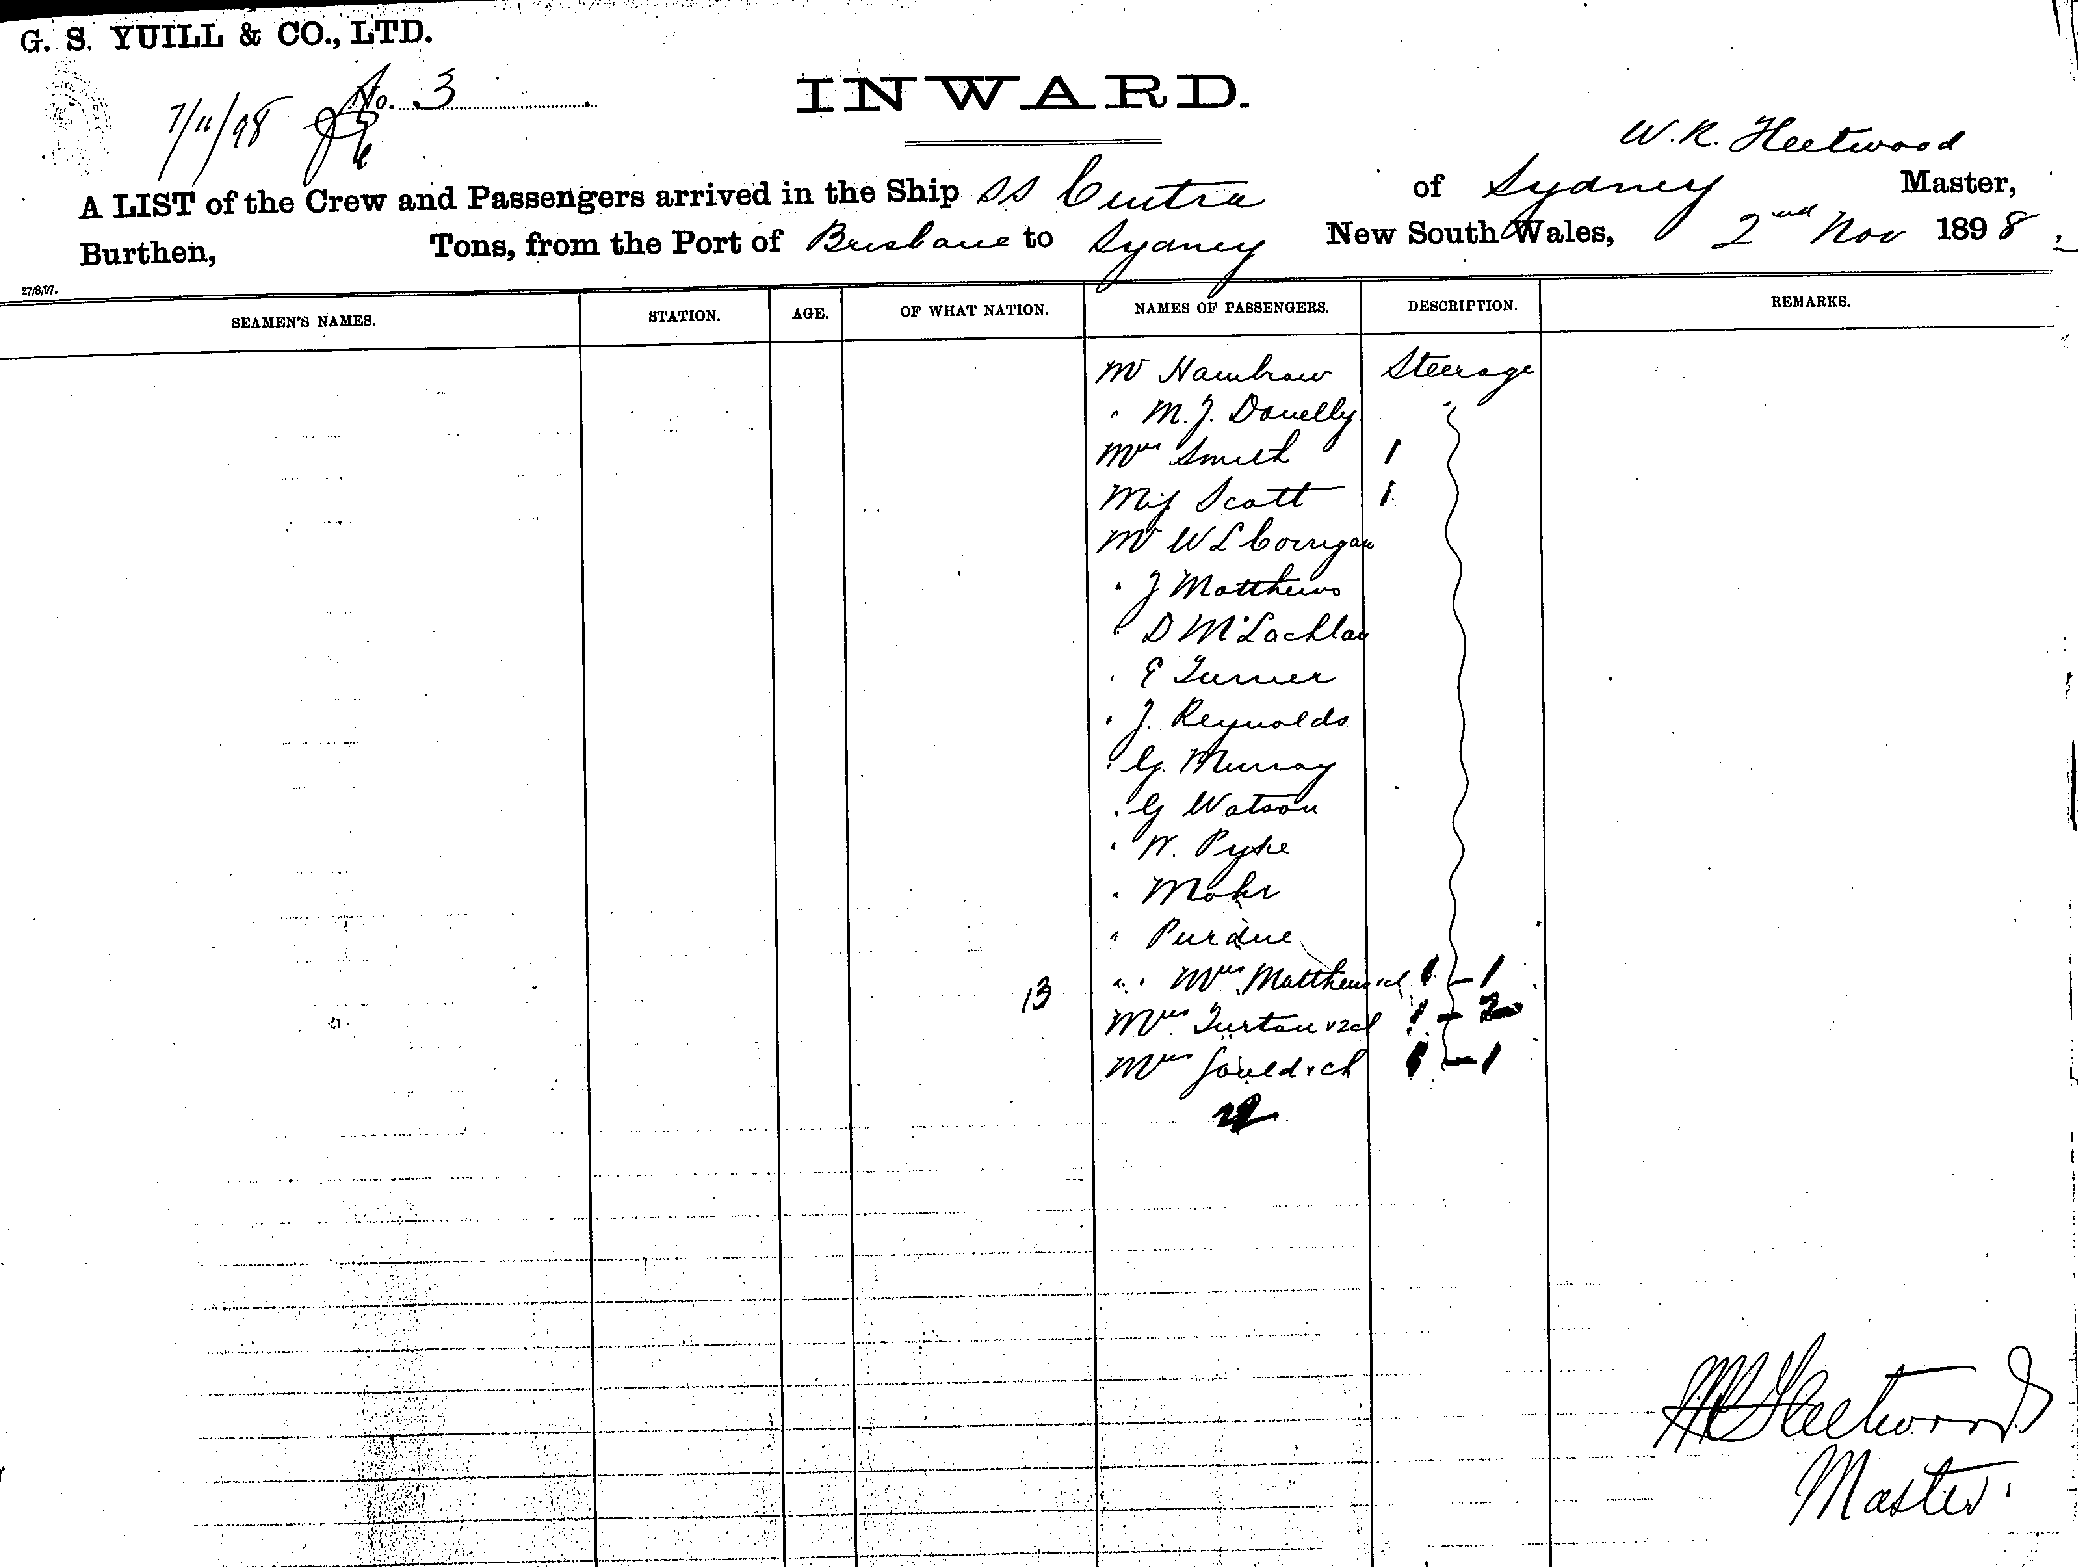 G. S. YUILL & CO., LTD.
No. 3
7/11/98
INWARD.
W. R. Fleetwood
A LIST of the Crew and Passengers arrived in the Ship SS Cintra of Sydney Master,
Burthen, Tons, from the Port of Brisbane to Sydney New South Wales, 2nd Nov 1898.
27/8/97.
SEAMEN'S NAMES. STATION. AGE. OF WHAT NATION. NAMES OF PASSENGERS. DESCRIPTION. REMARKS.
Mr Hambrow Steerage
" M. J. Donelly "
Mrs Smith 1
Miss Scott 1
Mr W L Corrigan
" J Matthews
" D McLachlan
" E Turner
" J. Reynolds
" G. Murray
" G Watson
" W. Pyke
" Mohr
" Purdue
" " Mrs Matthews & cl 1 - 1
13
Mrs Turton & 2 cl 1 - 2
Mrs Gould & ch 1 - 1
W R Fleetwood
Master.